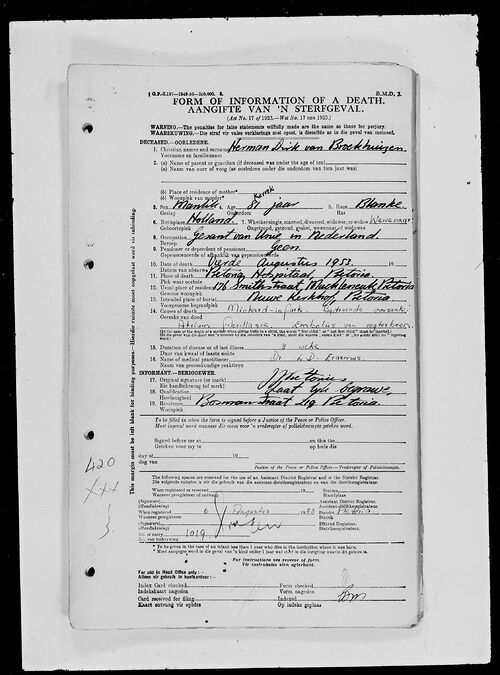 § G.P.-S.197—1949-50—250,000. S.
B.M.D. 2.
FORM OF INFORMATION OF A DEATH.
AANGIFTE VAN 'N STERFGEVAL.
(Act No. 17 of 1923.—Wet No. 17 van 1923.)
WARNING.—The penalties for false statements wilfully made are the same as those for perjury.
WAARSKUWING.—Die straf vir valse verklarings met opset, is dieselfde as in die geval van meineed.
DECEASED:—OORLEDENE.
1. Christian names and surname Herman Dirk van Broekhuizen
Voorname en familienaam
2. (a) Name of parent or guardian (if deceased was under the age of ten)
(a) Naam van ouer of voog (as oorledene onder die ouderdom van tien jaar was)
(b) Place of residence of mother*
(b) Woonplek van moeder*
3. Sex Manlik 4. Age 81 jaar 5. Race Blanke
Geslag Ouderdom Ras
6. Birthplace Holland 7. Whether single, married, divorced, widower, or widow Wewenaar
Geboorteplek Ongetroud, getroud, geskei, wewenaar of weduwee
8. Occupation Gesant van Unie in Nederland
Beroep
9. Pensioner or dependent of pensioner Geen
Gepensioneerde of afhanklik van gepensioneerde
10. Date of death Vierde Augustus 1953. 19
Datum van afsterwe
11. Place of death Pretoria Hospitaal, Pretoria.
Plek waar oorlede
12. Usual place of residence 176 Smithstraat, Muckleneuk, Pretoria
Gewone woonplek
13. Intended place of burial Nuwe Kerkhof, Pretoria
14. Causes of death Miokard-infark
Oorsake van dood
Atrium fibrillasie Embolus van regterbeen
15. Duration of disease or of last illness 3 weke
Duur van kwaal of laaste siekte
16. Name of medical practitioner Dr L.D. Erasmus.
Naam van geneeskundige praktisyn
INFORMANT:—BERIGGEWER.
17. Original signature (or mark)
Eie handtekening (of merk)
18. Qualification
Hoedanigheid
19. Residence Bosman Straat 219 Pretoria
Woonplek
To be filled in when the form is signed before a Justice of the Peace or Police Officer.
Moet ingevul word wanneer die vorm voor 'n vrederegter of polisiebeampte geteken word.
Signed before me at on this the
Geteken voor my te op hede die
day of 19
dag van
Justice of the Peace or Police Officer.—Vrederegter of Polisiebeampte.
The following spaces are reserved for the use of an Assistant District Registrar and of the District Registrar.
Die volgende ruimtes is vir die gebruik van die assistent-distriksregistrateur en die distriksregistrateur.
When registered or received 19 Station
Wanneer geregistreer of ontvang Standplaas
(Signature) Assistant District Registrar.
(Handtekening) Assistent-distriksregistrateur
When registered 6 Augustus 1953 District Pretoria
Wanneer geregistreer Distrik
(Signature) District Registrar.
(Handtekening) Distriksregistrateur
No. of entry 1019
No. van inskrywing
* To be given in the case of an infant less than 1 year who dies in the institution where it was born.
Moet aangegee word in die geval van 'n kind onder 1 jaar wat sterf in die inrigting waarin dit gebore is.
For instructions see reverse of form.
Vir instruksies sien agterkant.
For use in Head Office only:—
Alleen vir gebruik in hoofkantoor:—
Index Card checked Form checked
Indekskaart nagesien Vorm nagesien
Card received for filing Indexed
Kaart ontvang vir opbêre Op indeks geplaas
This margin must be left blank for binding purposes.—Hierdie ruimte moet oopgelaat word vir inbinding.
420
XXX